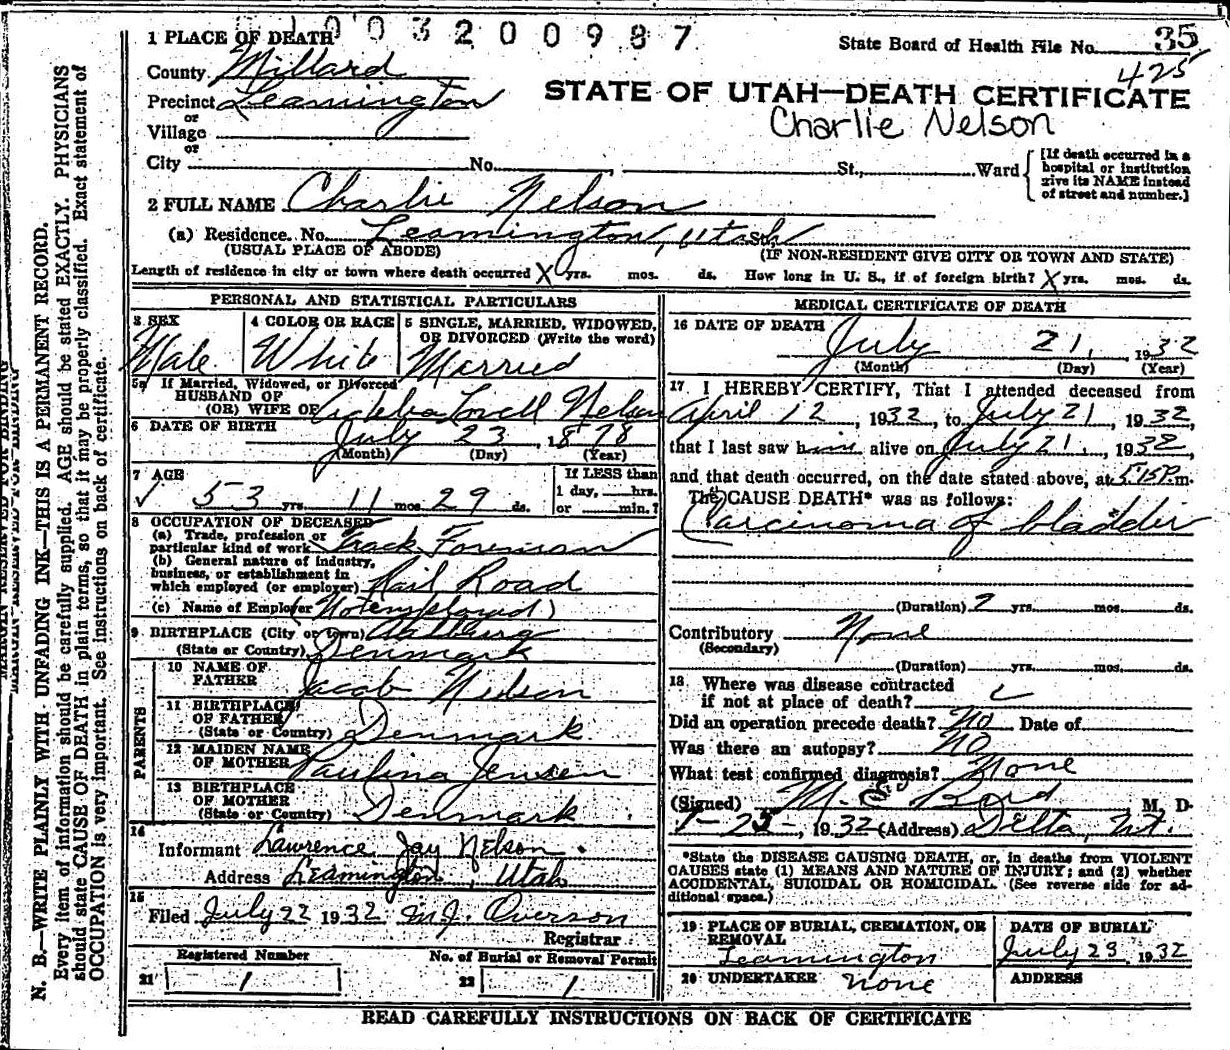 1003200987
1 PLACE OF DEATH
State Board of Health File No. 35
425
County Millard
Precinct Leamington
or
Village
or
STATE OF UTAH—DEATH CERTIFICATE
Charlie Nelson
City No. , St., Ward
[If death occurred in a
hospital or institution
give its NAME instead
of street and number.]
2 FULL NAME Charlie Nelson
(a) Residence. No. Leamington, Utah St.
(USUAL PLACE OF ABODE) (IF NON-RESIDENT GIVE CITY OR TOWN AND STATE)
Length of residence in city or town where death occurred X yrs. mos. ds. How long in U. S., if of foreign birth? X yrs. mos. ds.
PERSONAL AND STATISTICAL PARTICULARS
3 SEX 4 COLOR OR RACE 5 SINGLE, MARRIED, WIDOWED,
OR DIVORCED (Write the word)
Male White Married
5a If Married, Widowed, or Divorced
HUSBAND OF
(OR) WIFE OF Lovell Nelson
6 DATE OF BIRTH July 23, 1878
(Month) (Day) (Year)
7 AGE
53 yrs. 11 mos. 29 ds.
If LESS than
1 day, hrs.
or min.?
8 OCCUPATION OF DECEASED
(a) Trade, profession or
particular kind of work Track Foreman
(b) General nature of industry,
business, or establishment in
which employed (or employer) Rail Road
(c) Name of Employer (Not employed)
9 BIRTHPLACE (City or town) Aalburg
(State or Country) Denmark
PARENTS
10 NAME OF
FATHER Jacob Nelson
11 BIRTHPLACE
OF FATHER
(State or Country) Denmark
12 MAIDEN NAME
OF MOTHER Paulina Jensen
13 BIRTHPLACE
OF MOTHER
(State or Country) Denmark
14
Informant Lawrence Jay Nelson
Address Leamington, Utah
15
Filed July 22 1932 M.J. Overson
Registrar
Registered Number No. of Burial or Removal Permit
21 1 22 1
MEDICAL CERTIFICATE OF DEATH
16 DATE OF DEATH
July 21, 1932
(Month) (Day) (Year)
17 I HEREBY CERTIFY, That I attended deceased from
April 12, 1932, to July 21, 1932,
that I last saw him alive on July 21, 1932,
and that death occurred, on the date stated above, at 5:15P.m.
The CAUSE DEATH* was as follows:
Carcinoma of bladder
(Duration) 2 yrs. mos. ds.
Contributory None
(Secondary)
(Duration) yrs. mos. ds.
18 Where was disease contracted
if not at place of death?
Did an operation precede death? No Date of
Was there an autopsy? No
What test confirmed diagnosis? None
(Signed) M. E. Bird M. D.
1932 (Address) Delta, Ut.
*State the DISEASE CAUSING DEATH, or, in deaths from VIOLENT
CAUSES state (1) MEANS AND NATURE OF INJURY; and (2) whether
ACCIDENTAL, SUICIDAL OR HOMICIDAL. (See reverse side for ad-
ditional space.)
19 PLACE OF BURIAL, CREMATION, OR
REMOVAL
Leamington
DATE OF BURIAL
July 23 1932
20 UNDERTAKER none
ADDRESS
READ CAREFULLY INSTRUCTIONS ON BACK OF CERTIFICATE
MARGIN RESERVED FOR BINDING
N. B.—WRITE PLAINLY WITH UNFADING INK—THIS IS A PERMANENT RECORD.
Every item of information should be carefully supplied. AGE should be stated EXACTLY. PHYSICIANS
should state CAUSE OF DEATH in plain terms, so that it may be properly classified. Exact statement of
OCCUPATION is very important. See instructions on back of certificate.